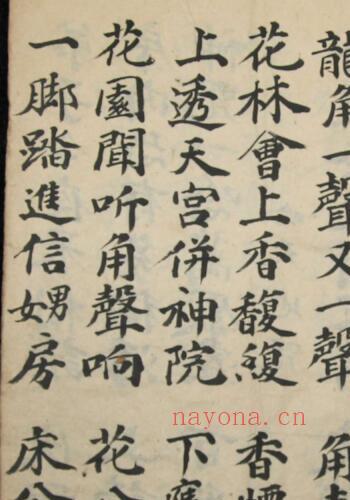 龍角一聲又一聲 角
花林會上香馥緮 香煙
上透天宮併神院 下
花園聞听角聲响 花
一脚踏進信男女房 床公
nayona.cn